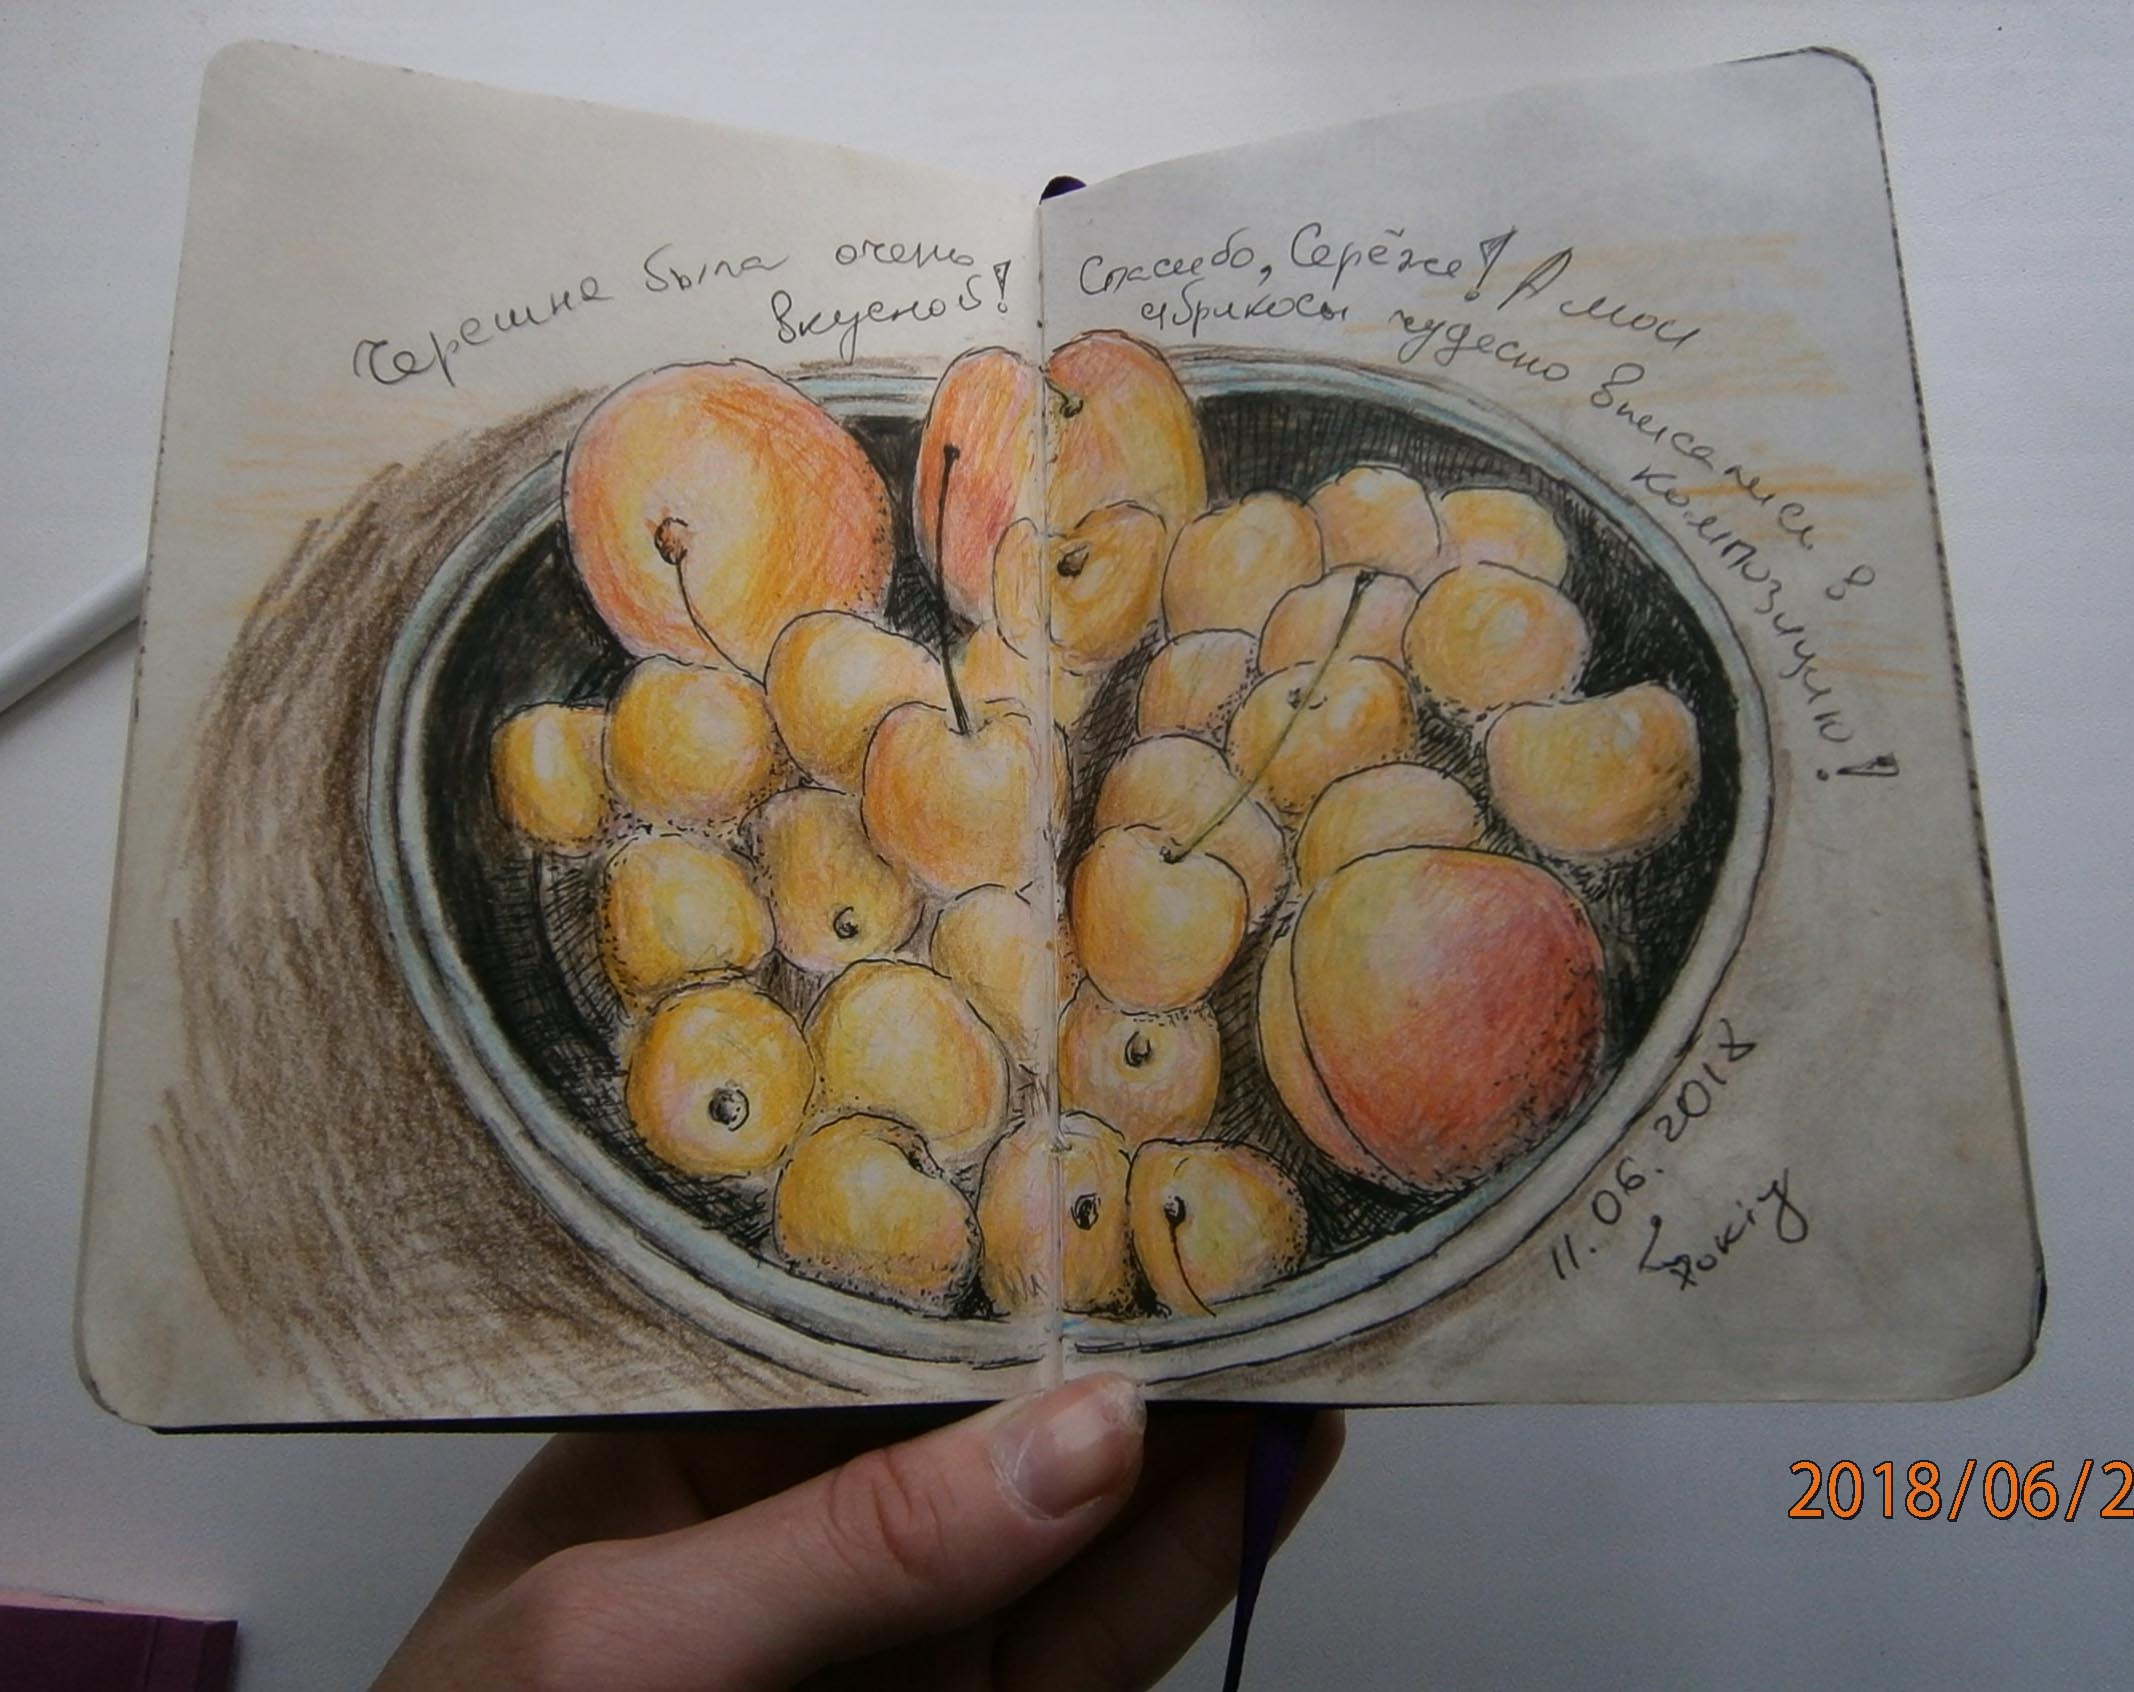 Черешня была очень
вкусной!
Спасибо, Серёже! А мои
абрикосы чудесно вписались в
композицию!
11.06.2018
2018/06/2